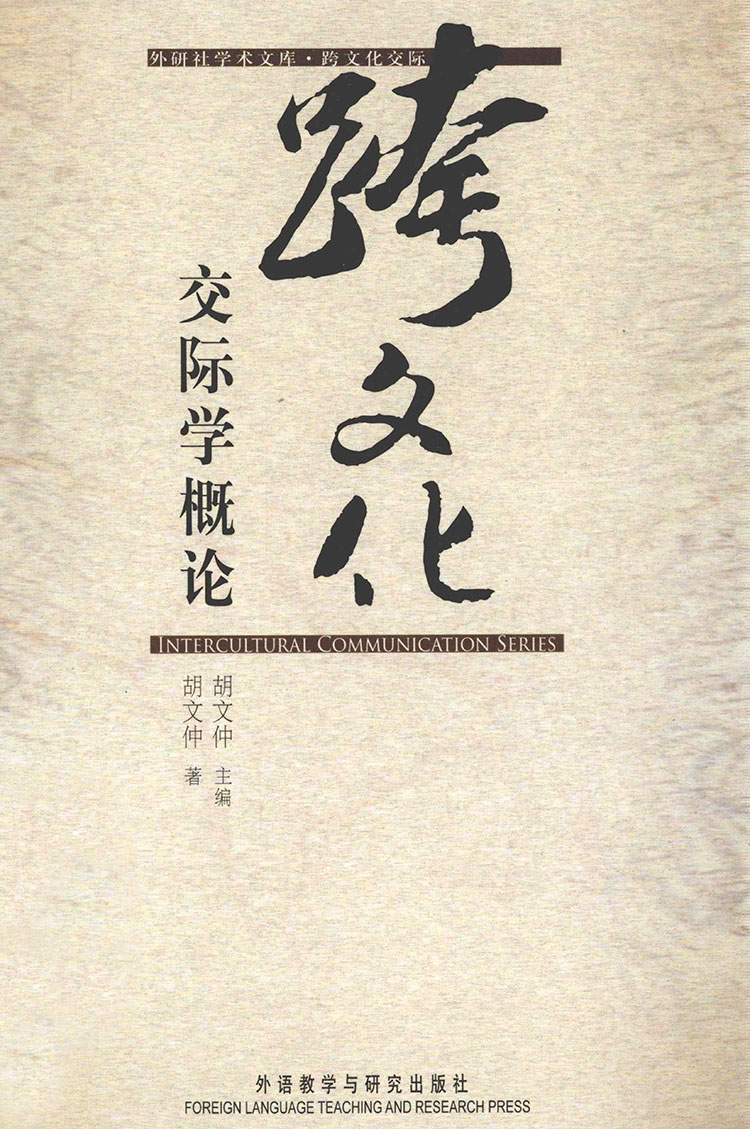 外研社学术文库·跨文化交际
跨文化
交际学概论
INTERCULTURAL COMMUNICATION SERIES
胡文仲 主编
胡文仲 著
外语教学与研究出版社
FOREIGN LANGUAGE TEACHING AND RESEARCH PRESS